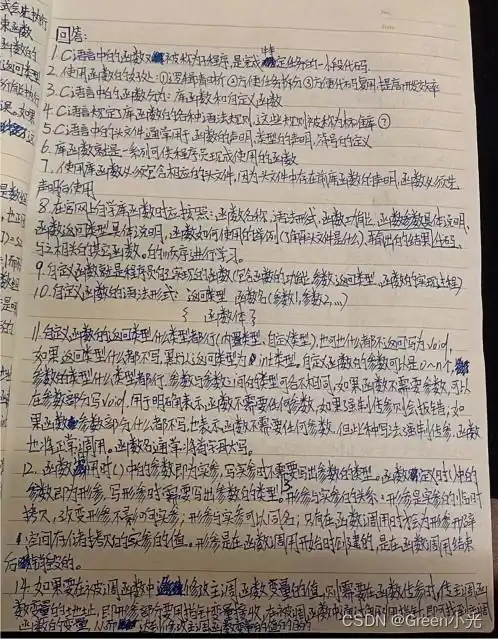 回答:
1. C语言中的函数又被称为子程序,是完成特定任务的一小段代码
2. 使用函数的好处: ①逻辑看清析 ②方便任务拆份 ③方便代码复用,提高开发效率
3. C语言中的函数分为: 库函数和自定义函数
4. C语言规定了库函数的各种语法规则,这些规则被称为标准库 ②
5. C语言中的头文件通常用于函数的声明,类型的声明,符号的定义
6. 库函数就是一系列可供程序员现成使用的函数
7. 使用库函数必须包含相应的头文件,因为头文件中存在着库函数的声明,函数必须先
声明后使用
8. 在官网上自学库函数时应按照: 函数名称,语法形式,函数功能,函数参数具体说明,
函数返回类型具体说明,函数如何使用的举例(了解头文件是什么),再输出的结果,代码,
与之相关的其它函数。的顺序进行学习。
9. 自定义函数就是程序员自己实现的函数(包含函数的功能,参数,返回类型,函数的实现过程)
10. 自定义函数的语法形式: 返回类型 函数名(参数1,参数2,...)
{ 函数体 }
11. 自定义函数的返回类型什么类型都行(内置类型,自定类型),也可什么都不返回写为void,
如果返回类型什么都不写,默认返回类型为int类型,自定义函数的参数可以是0~n个,
参数的类型什么类型都行,参数与参数之间的类型可合不相同,如果函数不需要参数,可以
在参数部分写void,用于明确表示函数不需要任何参数,如果强制传参则会报错;如
果函数参数部分什么都不写,也表示函数不需要任何参数,但此种写法强制传参,函数
也将正常调用。函数名通常将首字母大写。
12. 函数调用时()中的参数即为实参,写实参时不需要写出参数的类型。函数定义时()中的
参数即为形参,写形参时需要写出参数的类型。13 形参与实参的关系: 形参是实参的临时
拷贝,改变形参不影响实参; 形参与实参可以同名; 只有在函数调用时才会为形参开辟
空间存储拷贝的实参的值。形参是在函数调用开始时创建的,是在函数调用结束
后销毁的。
14. 如果要在被调函数中修改主调函数变量的值,则需要在函数传参时,传主调函
数变量的地址,即形参部分要用指针变量接收,在被调函数中通过利用指针,即可找到主调
函数的变量,从而达到修改主调函数变量的值的目的
CSDN @小光